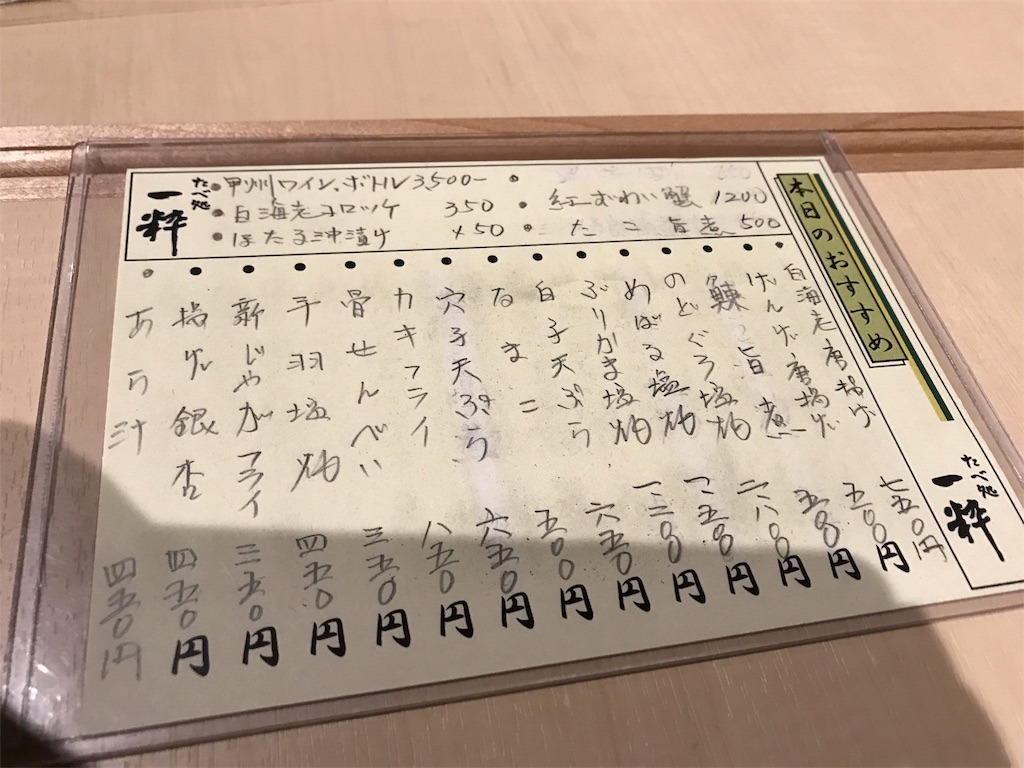 本日のおすすめ
たべ処
一粋
白海老唐揚げ 七五〇円
げんげ唐揚げ 五〇〇円
鰊旨煮 五〇〇円
のどぐろ塩焼 二八〇〇円
めばる塩焼 一五〇〇円
ぶりかま塩焼 一二〇〇円
白子天ぷら 六五〇円
なまこ 五〇〇円
穴子天ぷら 六五〇円
カキフライ 八五〇円
骨せんべい 三五〇円
手羽塩焼 四五〇円
新じゃがフライ 三五〇円
揚げ銀杏 四五〇円
あら汁 四五〇円
たべ処
一粋
甲州ワイン、ボトル 3,500-
白海老コロッケ 350
ほたる沖漬け 450
紅ずわい蟹 1200
たこ旨煮 500